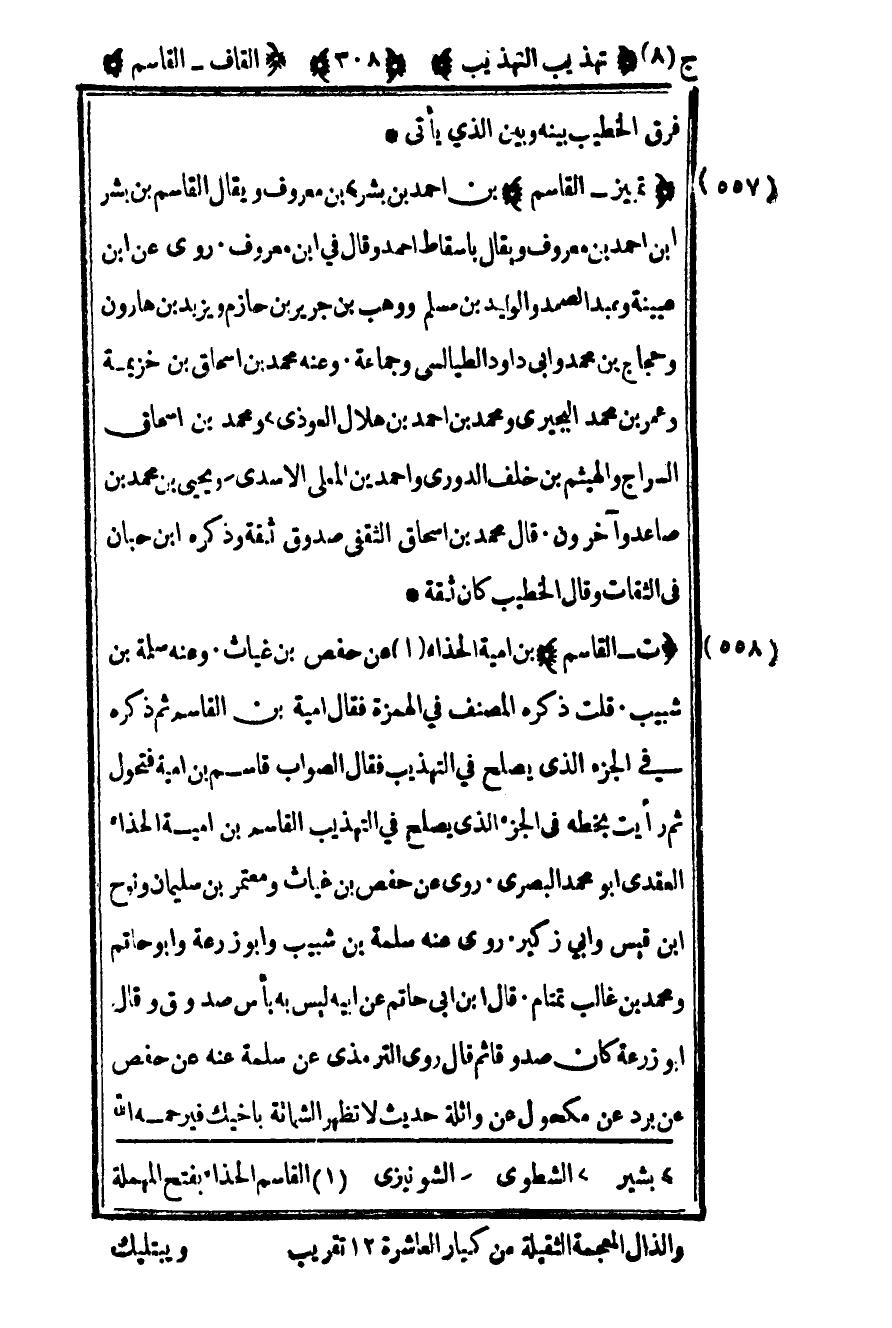 ج (٨) ﴿ تهذيب التهذيب ﴾ ﴿ ٣٠٨ ﴾ ﴿ القاف ـ القاسم ﴾
فرق الخطيب بينه وبين الذي يأتى *
(٥٥٧) ﴿ تمييز ـ القاسم ﴾ بن احمد بن بشر ٤ بن معروف ويقال القاسم بن بشر
ابن احمد بن معروف ويقال باسقاط احمد وقال في ابن معروف ٠ روى عن ابن
عيينة وعبد الصمد والوليد بن مسلم ووهب بن جرير بن حازم ويزيد بن هارون
وحجاج بن محمد وابى داود الطيالسى وجماعة ٠ وعنه محمد بن اسحاق بن خزيمة
وعمر بن محمد البجيرى ومحمد بن احمد بن هلال العوذى > ومحمد بن اسحاق
السراج والهيثم بن خلف الدورى واحمد بن المعلى الاسدى ~ ويحيى بن محمد بن
صاعد وآخرون ٠ قال محمد بن اسحاق الثقفى صدوق ثقة وذكره ابن حبان
فى الثقات وقال الخطيب كان ثقة *
(٥٥٨) ﴿ ت ـ القاسم ﴾ بن امية الحذاء (١) عن حفص بن غياث ٠ وعنه سلمة بن
شبيب ٠ قلت ذكره المصنف في الهمزة فقال امية بن القاسم ثم ذكره
في الجزء الذى يصلح في التهذيب فقال الصواب قاسم بن امية فتحول
ثم رأيت بخطه فى الجزء الذى يصلح في التهذيب القاسم بن امية الحذاء
العقدى ابو محمد البصرى ٠ روى عن حفص بن غياث ومعتمر بن سليمان ونوح
ابن قيس وابي زكير ٠ روى عنه سلمة بن شبيب وابو زرعة وابو حاتم
ومحمد بن غالب تمتام ٠ قال ابن ابى حاتم عن ابيه ليس به بأس صدوق وقال
ابو زرعة كان صدوقا ثم قال روى الترمذى عن سلمة عنه عن حفص
عن برد عن مكحول عن واثلة حديث لا تظهر الشماتة باخيك فيرحمه الله
٤ بشير > الشطوى ~ الشونيزى (١) القاسم الحذاء بفتح المهملة
والذال المعجمة الثقيلة من كبار العاشرة ١٢ تقريب ويبتليك